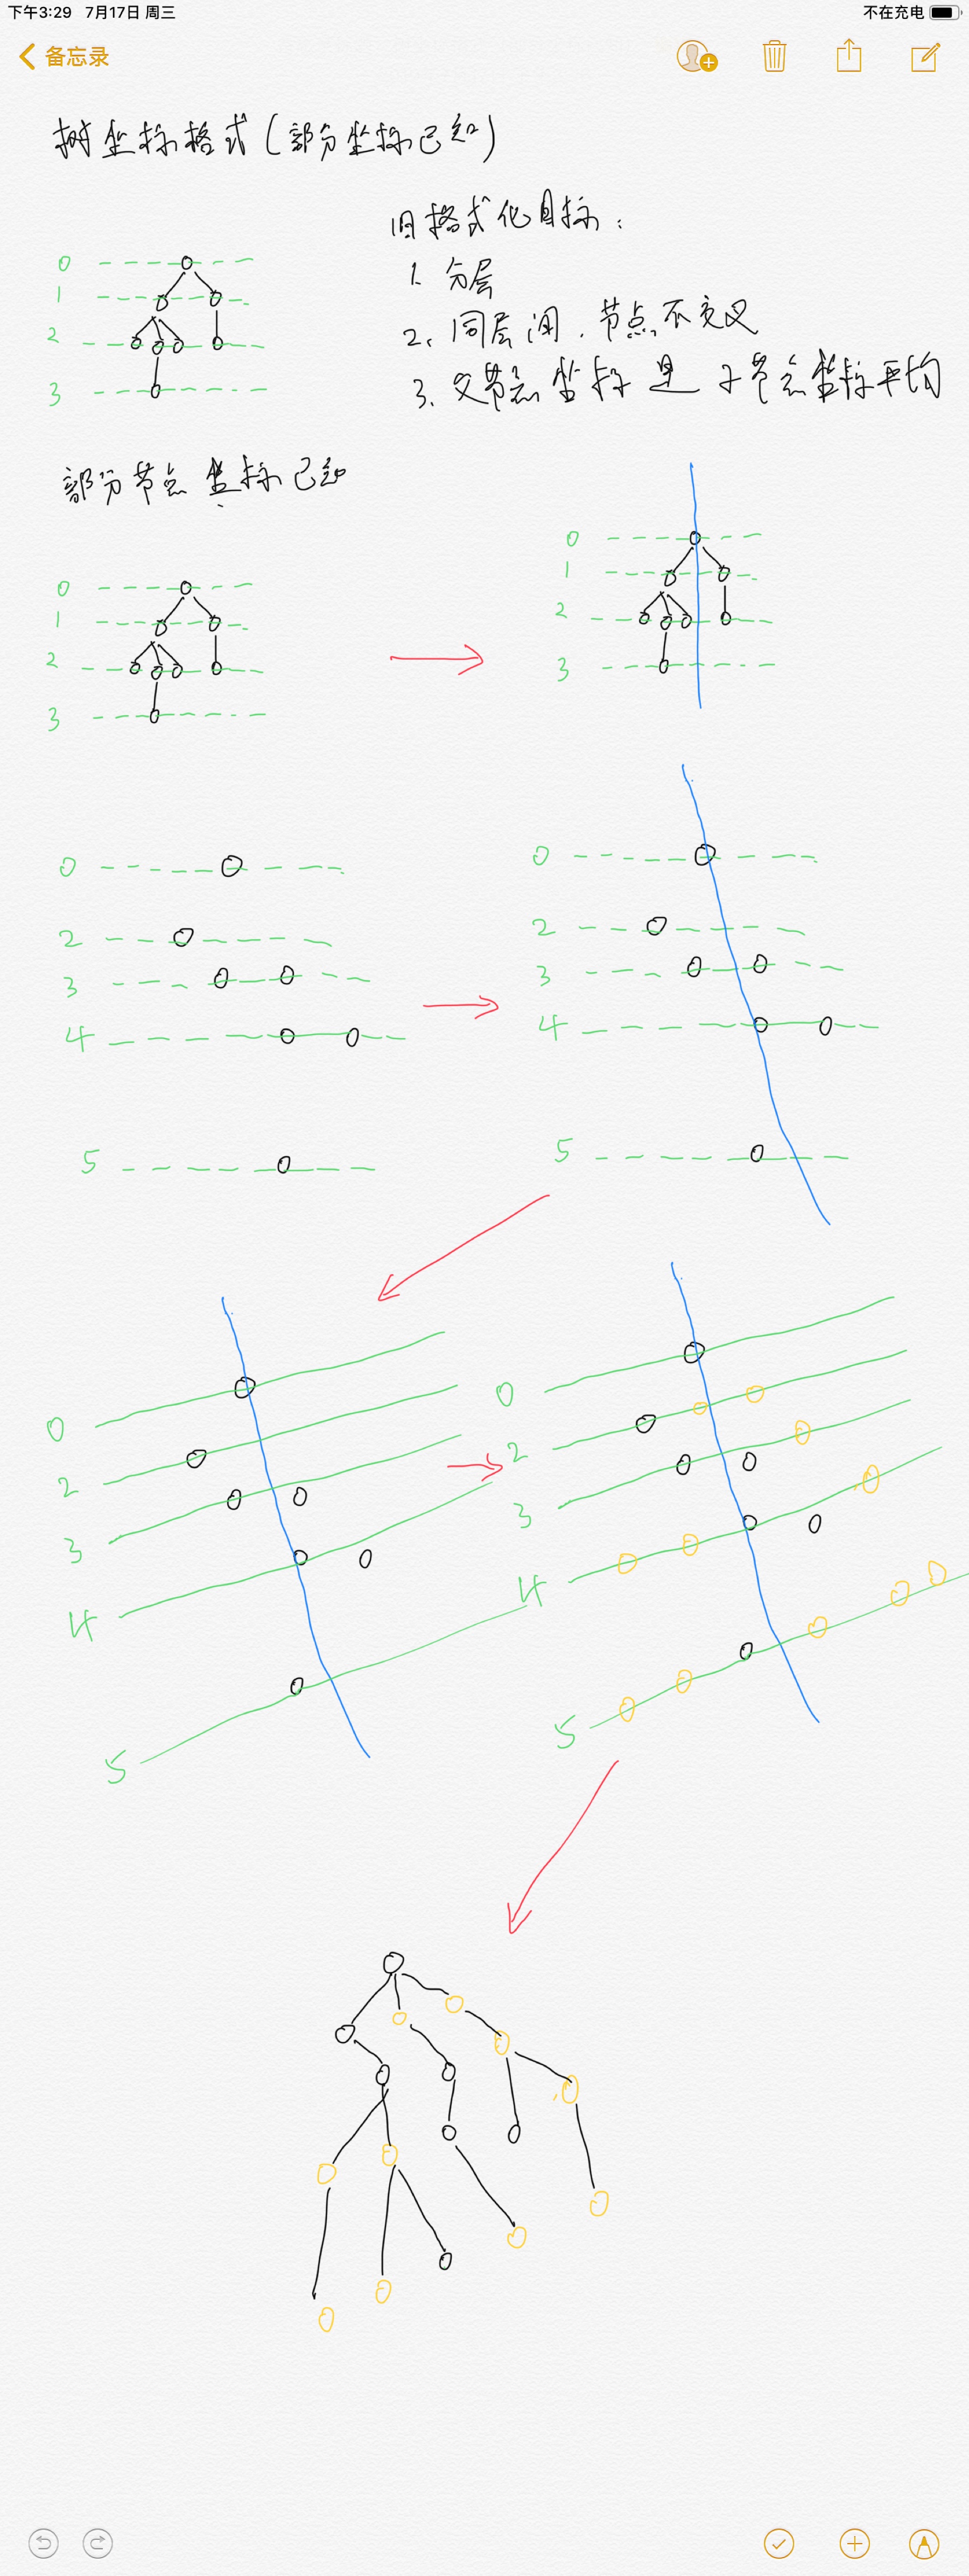 下午3:29 7月17日 周三
不在充电
备忘录
树坐标格式(部分坐标已知)
旧格式化目标:
1. 分层
2. 同层间,节点不交叉
3. 父节点坐标是子节点坐标平均
0
1
2
3
部分节点坐标已知
0
1
2
3
0
1
2
3
0
2
3
4
5
0
2
3
4
5
0
2
3
4
5
0
2
3
4
5